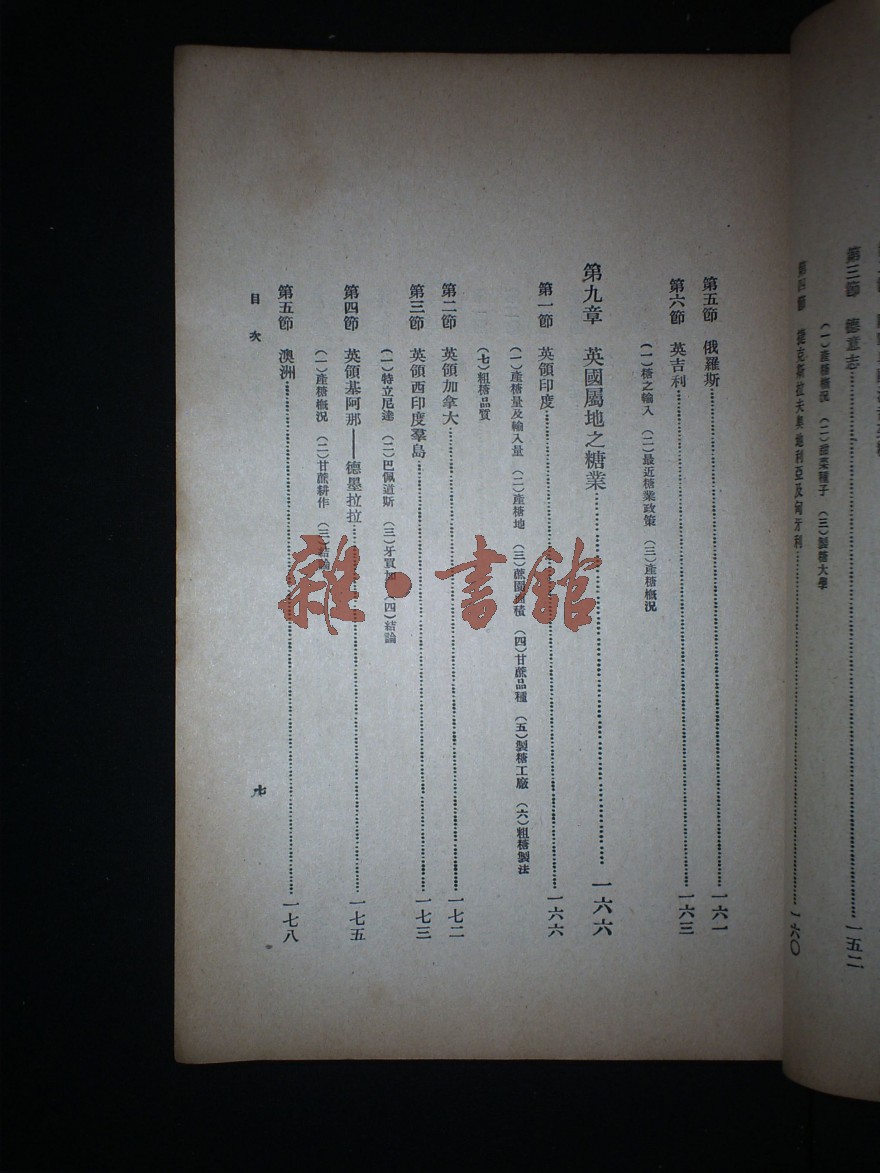 第三節　德意志……一五二
（一）產糖概況　（二）甜菜種子　（三）製糖大學
第四節　捷克斯拉夫奧地利亞及匈牙利……一六〇
第五節　俄羅斯……一六一
第六節　英吉利……一六三
（一）糖之輸入　（二）最近糖業政策　（三）產糖概況
第九章　英國屬地之糖業……一六六
第一節　英領印度……一六六
（一）產糖量及輸入量　（二）產糖地　（三）蔗園面積　（四）甘蔗品種　（五）製糖工廠　（六）粗糖製法
（七）粗糖品質
第二節　英領加拿大……一七二
第三節　英領西印度羣島……一七三
（一）特立尼達　（二）巴佩道斯　（三）牙買加　（四）結論
第四節　英領基阿那——德墨拉拉……一七五
（一）產糖概況　（二）甘蔗耕作　（三）結論
第五節　澳洲……一七八
目次
七
雜·書館